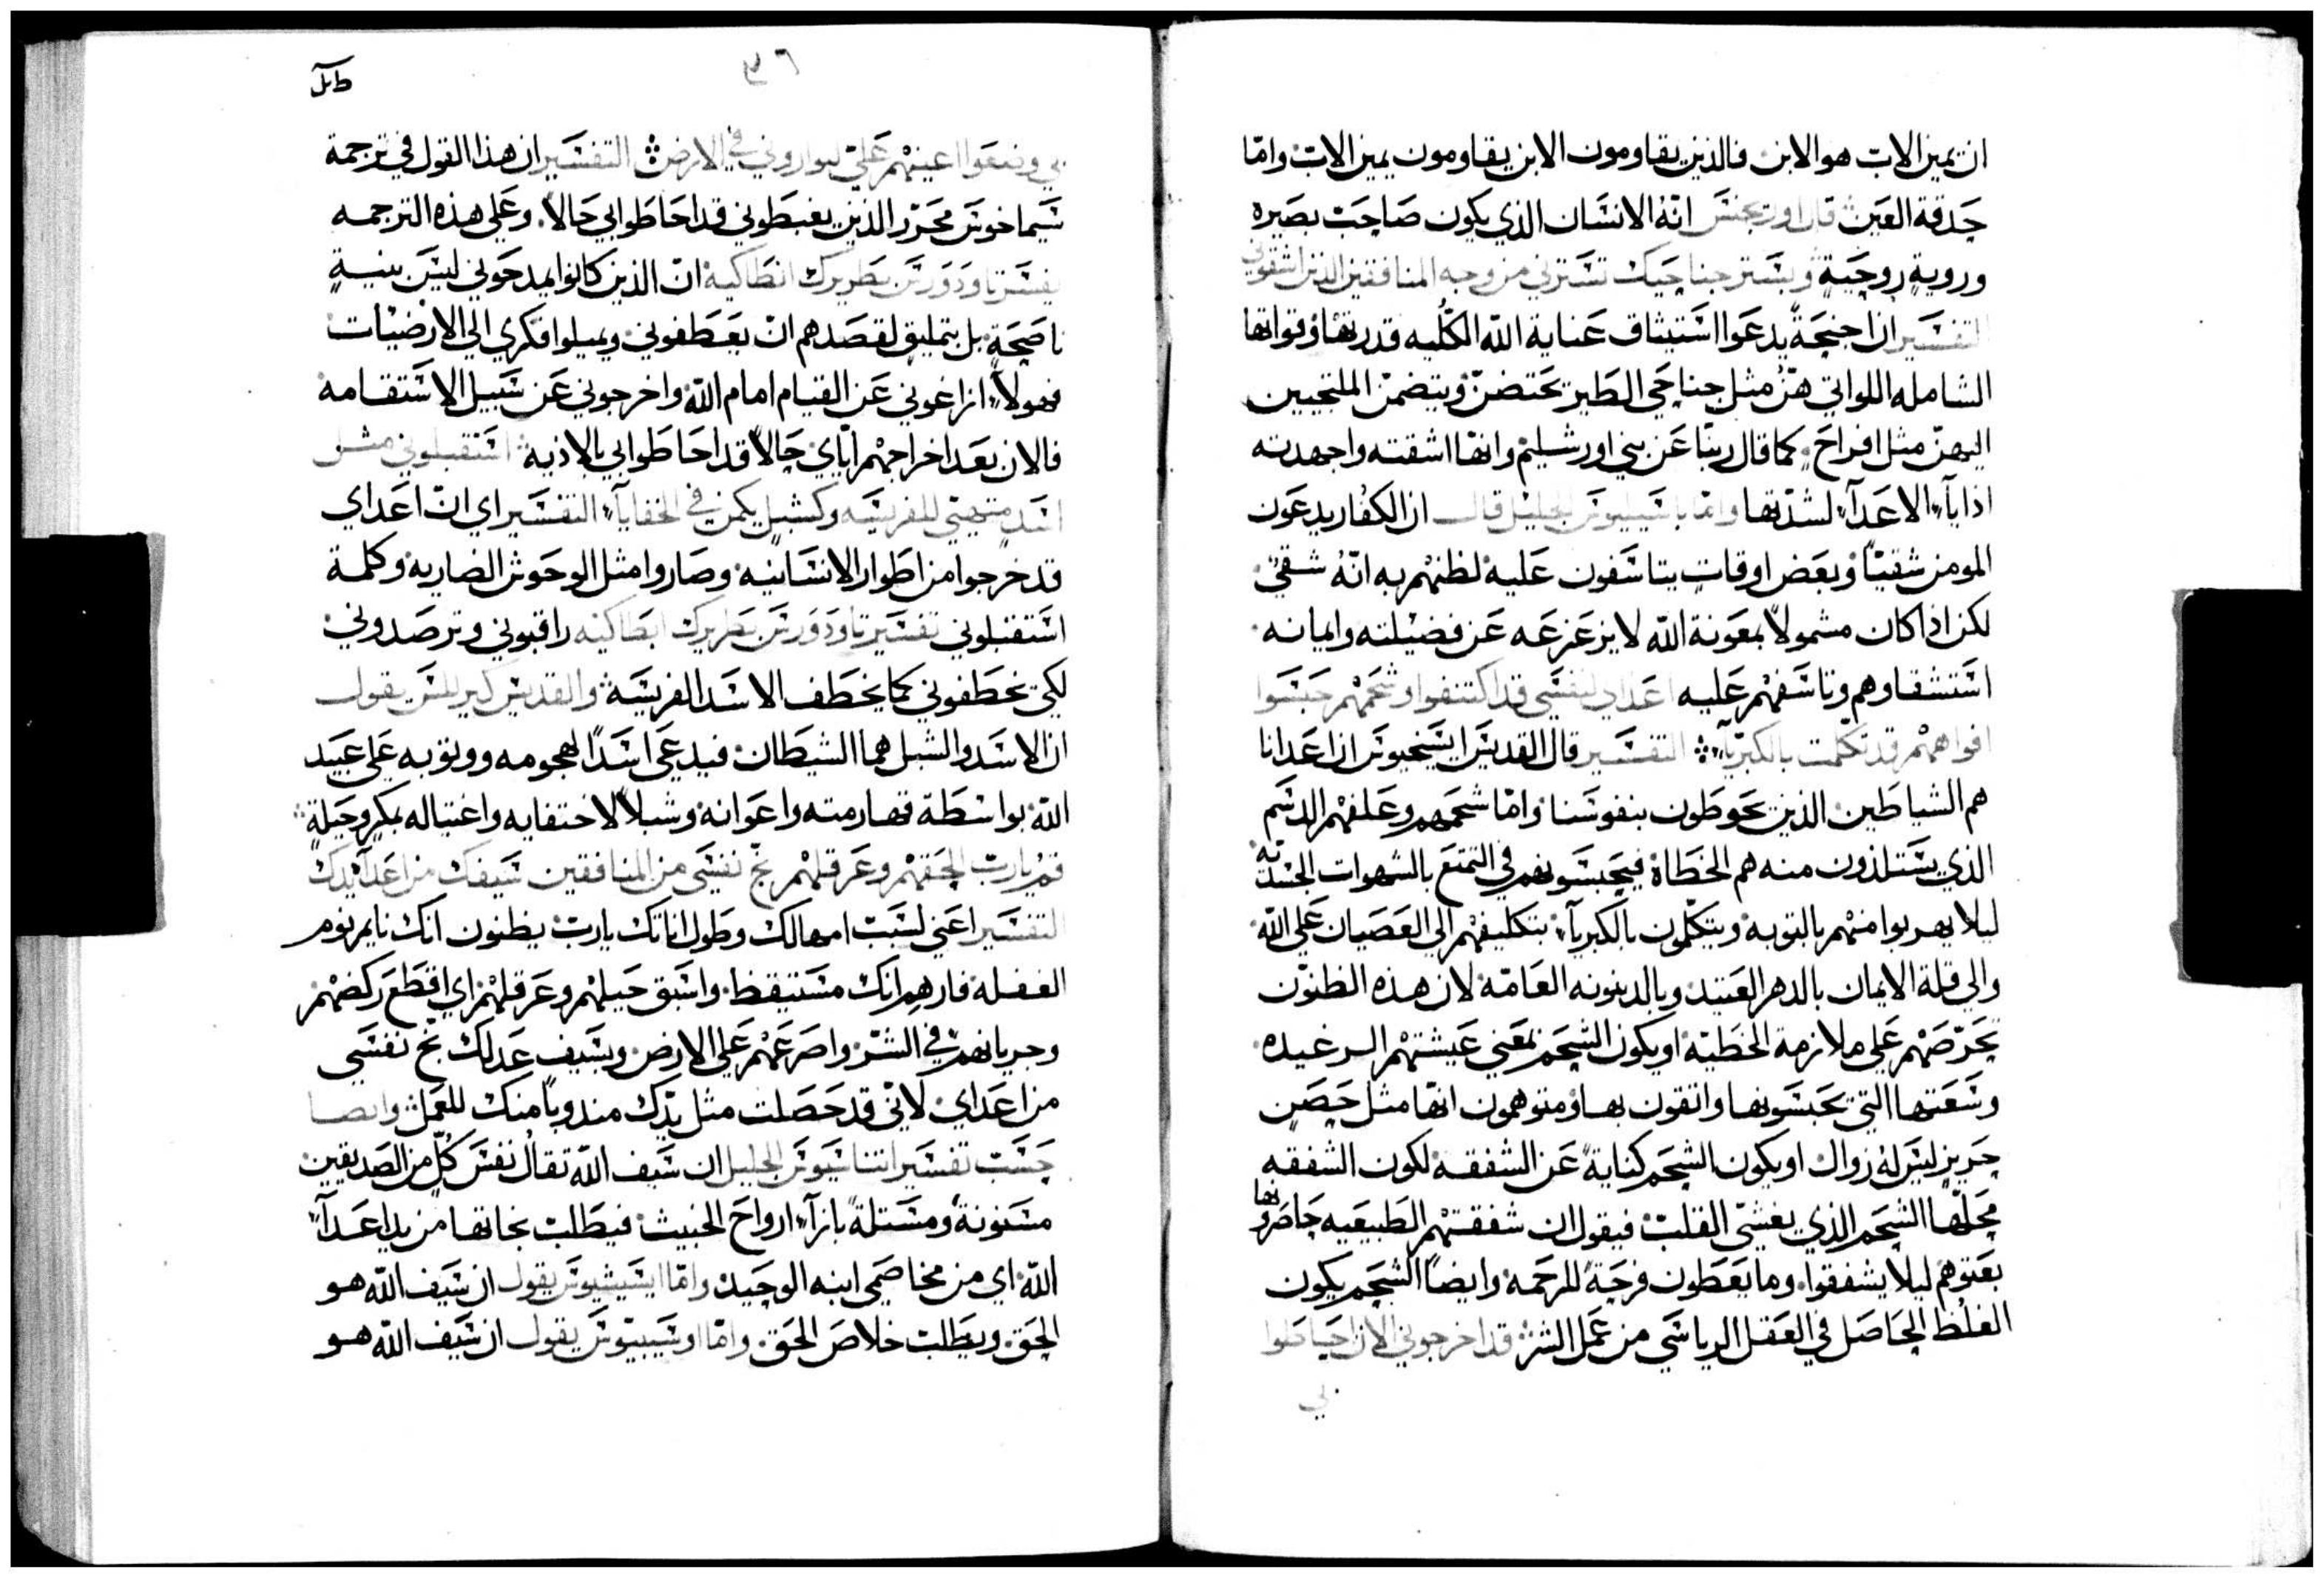 ان يمين الاب هو الابن فالذين يقاومون الابن يقاومون يمين الاب وامّا
حدقة العين قال اوريجنس انّهُ الانسان الذي يكون صاحب بصيره
وروية روحية وبستر جناحيك تسترني من وجه المنافقين الذين اشقوني
التفسير ان اجنحةً يدعوا استيثاق عناية الله الكُلّيه قدرتها وقواتها
الشامله اللواتي هنّ مثل جناحي الطير تحتضن وتتضمن الملتجيين
اليهنّ مثل افراخ كما قال ربنا عن بني اورشليم وانها اشقته واجهدته
اذايآء الاعدآء لشدتها وامّا باسيليوس الجليل قال ان الكفار يدعون
المومن شقيّاً وبعض اوقات يتاسفون عليه لظنهم به انّهُ شقي
لكن اذا كان مشمولاً بمعونة الله لا يزعزعه عن فضيلته وايمانه
استشقاوهم وتاسفهم عليه اعداي لنفسي قد اكتنفوا وشحمهم حبسوا
افواههم قد تكلمت بالكبريآء التفسير قال القديس ايسيخيوس ان اعدانا
هم الشياطين الذين يحوطون بنفوسنا وامّا شحمهم وعلفهم الدسم
الذي يستلذون منه هم الخطاة فيحبسونهم في التمتع بالشهوات الجسدانيه
ليلا يهربوا منهم بالتوبه ويتكلمون بالكبريآء بتكليفهم الي العصيان علي الله
والي قلة الايمان بالدهر العتيد وبالدينونه العامّه لان هذه الظنون
تحرّضهم علي ملازمة الخطية او يكون الشحم بمعني عيشتهم الرغيده
وسعتها التي يحبسونها واثقون بها ومتوهمون انّها مثل حصن
حريز ليس له زوال او يكون الشحم كنايةً عن الشفقه لكون الشفقه
محلّها الشحم الذي يغشّي القلب فيقول ان شفقتهم الطبيعيه حاصروها
بعتوهم ليلا يشفقوا وما يعطون فرجةً للرحمه وايضاً الشحم يكون
الغلظ الحاصل في العقل الرياسي من عمل الشر قد اخرجوني الان احاطوا
بي
٣٦
بي ونصبوا اعينهم عليّ ليواروني في الارض التفسير ان هذا القول في ترجمة
سيماخوس محرّر الذين يغبطوني قد احاطوا بي حالاً وعلي هذه الترجمه
يفسر ثاودوريتس بطريرك انطاكية انّ الذين كانوا يمدحوني ليس بنيةٍ
ناصحةٍ بل بتمليق لقصدهم ان يعطفوني ويميلوا فكري الي الارضيات
فهولآء ازاغوني عن القيام امام الله واخرجوني عن سبيل الاستقامه
فالان بعد اخراجهم ايّاي حالاً قد احاطوا بي بالاذيه استقبلوني مثل
اسد متهيّي للفريسه وكشبل يكمن في الخفايآء التفسير اي انّ اعداي
قد خرجوا من اطوار الانسانيه وصاروا مثل الوحوش الضاريه وكلمة
استقبلوني تفسير ثاودوريتس بطريرك انطاكيه راقبوني وترصدوني
لكي تخطفوني كما يخطف الاسد الفريسه والقديس كيرللس يقول
ان الاسد والشبل هما الشيطان فيدعي اسداً لهجومه ووثوبه علي عبيد
الله بواسطة قهارمته واعوانه وشبلاً لاختفايه واغتياله بمكر وحيلةٍ
قم يارب الحقهم وعرقلهم نجّ نفسي من المنافقين سيفك من اعدآء يدك
التفسير اعني لسبب امهالك وطول اناتك يارب يظنون انك نايم نوم
الغفله فارهم انك مستيقظ واسبق حيلهم وعرقلهم اي اقطع ركضهم
وجريانهم في الشر واصرعهم علي الارض وبسيف عدلك نجّ نفسي
من اعداي لاني قد حصلت مثل يدك مندوباً منك للعمل وايضا
حسب تفسير اثناسيوس الجليل ان سيف الله تقال نفس كلّ من الصديقين
مسنونة ومستلّة بازآء ارواح الخبيث فيطلب نجاتها من يد اعدآء
الله اي من مخاصمي ابنه الوحيد وامّا ايسيشيوس يقول ان سيف الله هو
الحق ويطلب خلاص الحق وامّا اوسيبيوس يقول ان سيف الله هو